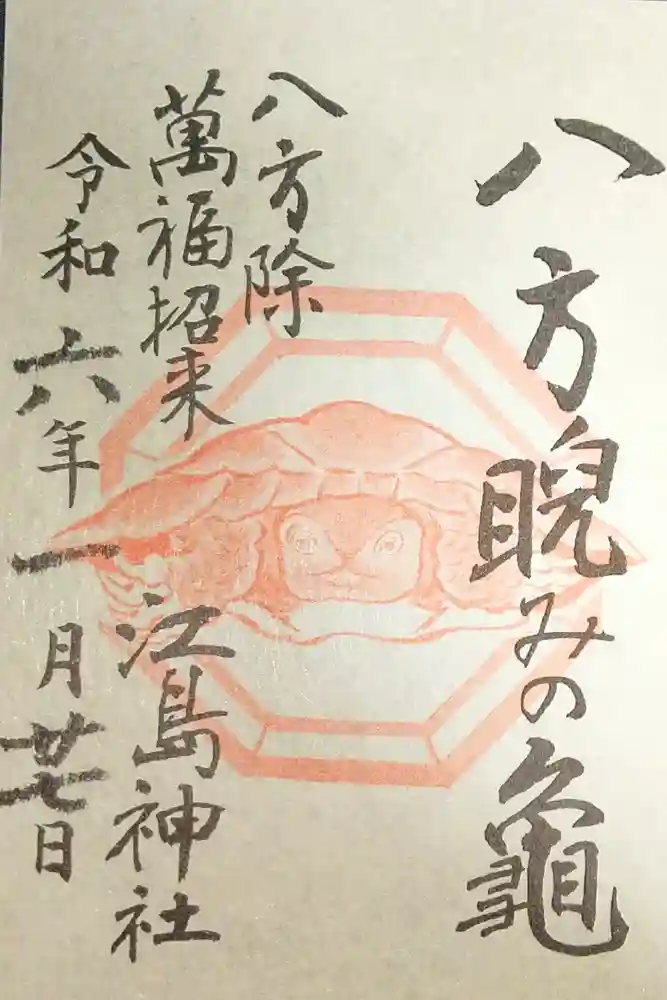 八方睨みの龜
八方除
萬福招来
江島神社
令和六年一月廿七日